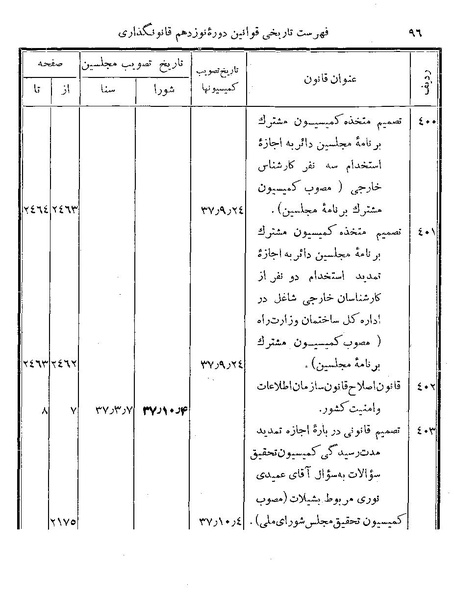 ۹۶
فهرست تاریخی قوانین دورهٔ نوزدهم قانونگذاری
ردیف
عنوان قانون
تاریخ تصویب کمیسیونها
تاریخ تصویب مجلسین
شورا
سنا
صفحه
از
تا
۴۰۰
تصمیم متخذه کمیسیون مشترك
برنامهٔ مجلسین دائر به اجازهٔ
استخدام سه نفر کارشناس
خارجی ( مصوب کمیسیون
مشترك برنامهٔ مجلسین).
۳۷٫۹٫۲۴
۲۴۶۳
۲۴۶۴
۴۰۱
تصمیم متخذه کمیسیون مشترك
برنامهٔ مجلسین دائر به اجازهٔ
تمدید استخدام دو نفر از
کارشناسان خارجی شاغل در
اداره کل ساختمان وزارت راه
( مصوب کمیسیون مشترك
برنامهٔ مجلسین).
۳۷٫۹٫۲۴
۲۴۶۲
۲۴۶۳
۴۰۲
قانون اصلاح قانون سازمان اطلاعات
وامنیت کشور.
۳۷٫۱۰٫۴
۳۷٫۳٫۷
۷
۸
۴۰۳
تصمیم قانونی در بارهٔ اجازه تمدید
مدت رسیدگی کمیسیون تحقیق
سؤالات به سؤال آقای عمیدی
نوری مربوط بشیلات (مصوب
کمیسیون تحقیق مجلس شورای ملی).
۳۷٫۱۰٫۴
۲۱۷۵